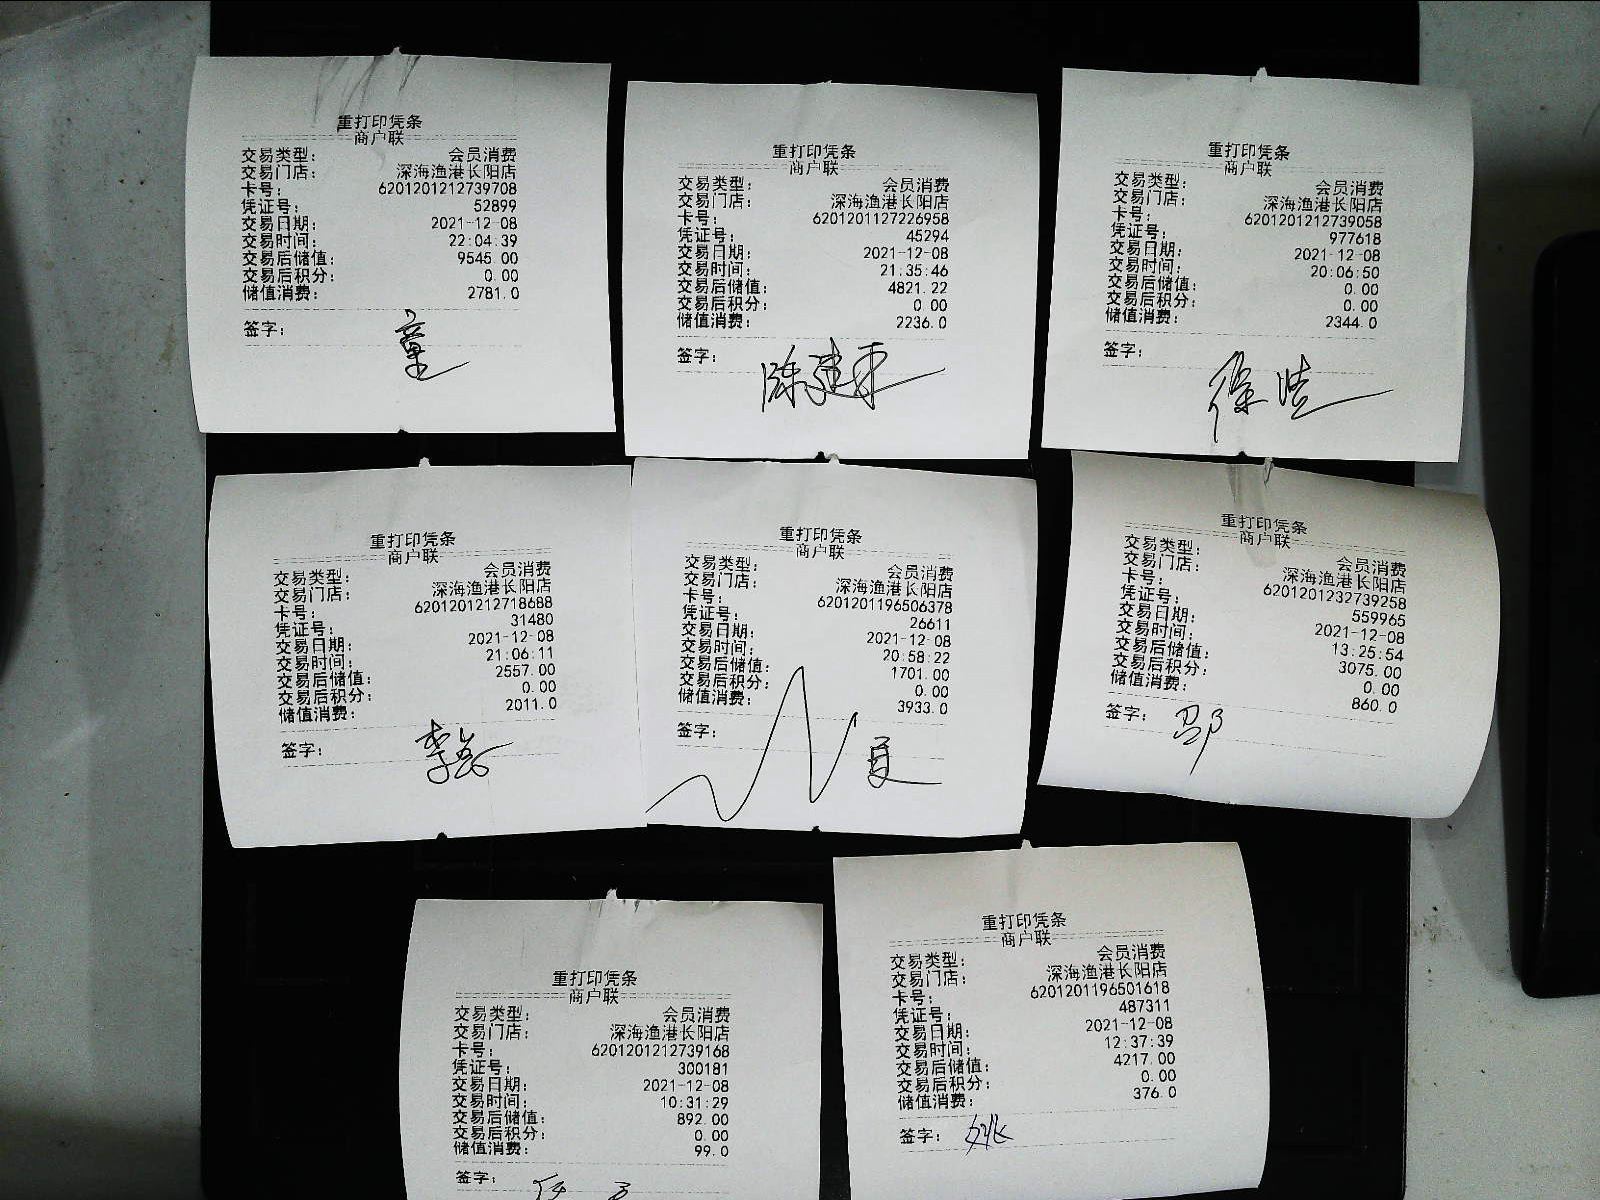 重打印凭条
商户联
交易类型: 会员消费
交易门店: 深海渔港长阳店
卡号: 6201201212739708
凭证号: 52899
交易日期: 2021-12-08
交易时间: 22:04:39
交易后储值: 9545.00
交易后积分: 0.00
储值消费: 2781.0
签字: 童
重打印凭条
商户联
交易类型: 会员消费
交易门店: 深海渔港长阳店
卡号: 6201201127226958
凭证号: 45294
交易日期: 2021-12-08
交易时间: 21:35:46
交易后储值: 4821.22
交易后积分: 0.00
储值消费: 2236.0
签字: 陈建平
重打印凭条
商户联
交易类型: 会员消费
交易门店: 深海渔港长阳店
卡号: 6201201212739058
凭证号: 977618
交易日期: 2021-12-08
交易时间: 20:06:50
交易后储值: 0.00
交易后积分: 0.00
储值消费: 2344.0
签字: 徐
重打印凭条
商户联
交易类型: 会员消费
交易门店: 深海渔港长阳店
卡号: 6201201212718688
凭证号: 31480
交易日期: 2021-12-08
交易时间: 21:06:11
交易后储值: 2557.00
交易后积分: 0.00
储值消费: 2011.0
签字: 李
重打印凭条
商户联
交易类型: 会员消费
交易门店: 深海渔港长阳店
卡号: 6201201196506378
凭证号: 26611
交易日期: 2021-12-08
交易时间: 20:58:22
交易后储值: 1701.00
交易后积分: 0.00
储值消费: 3933.0
签字: 夏
重打印凭条
商户联
交易类型: 会员消费
交易门店: 深海渔港长阳店
卡号: 6201201232739258
凭证号: 559965
交易日期: 2021-12-08
交易时间: 13:25:54
交易后储值: 3075.00
交易后积分: 0.00
储值消费: 860.0
签字: 邵
重打印凭条
商户联
交易类型: 会员消费
交易门店: 深海渔港长阳店
卡号: 6201201212739168
凭证号: 300181
交易日期: 2021-12-08
交易时间: 10:31:29
交易后储值: 892.00
交易后积分: 0.00
储值消费: 99.0
签字:
重打印凭条
商户联
交易类型: 会员消费
交易门店: 深海渔港长阳店
卡号: 6201201196501618
凭证号: 487311
交易日期: 2021-12-08
交易时间: 12:37:39
交易后储值: 4217.00
交易后积分: 0.00
储值消费: 376.0
签字: 姚